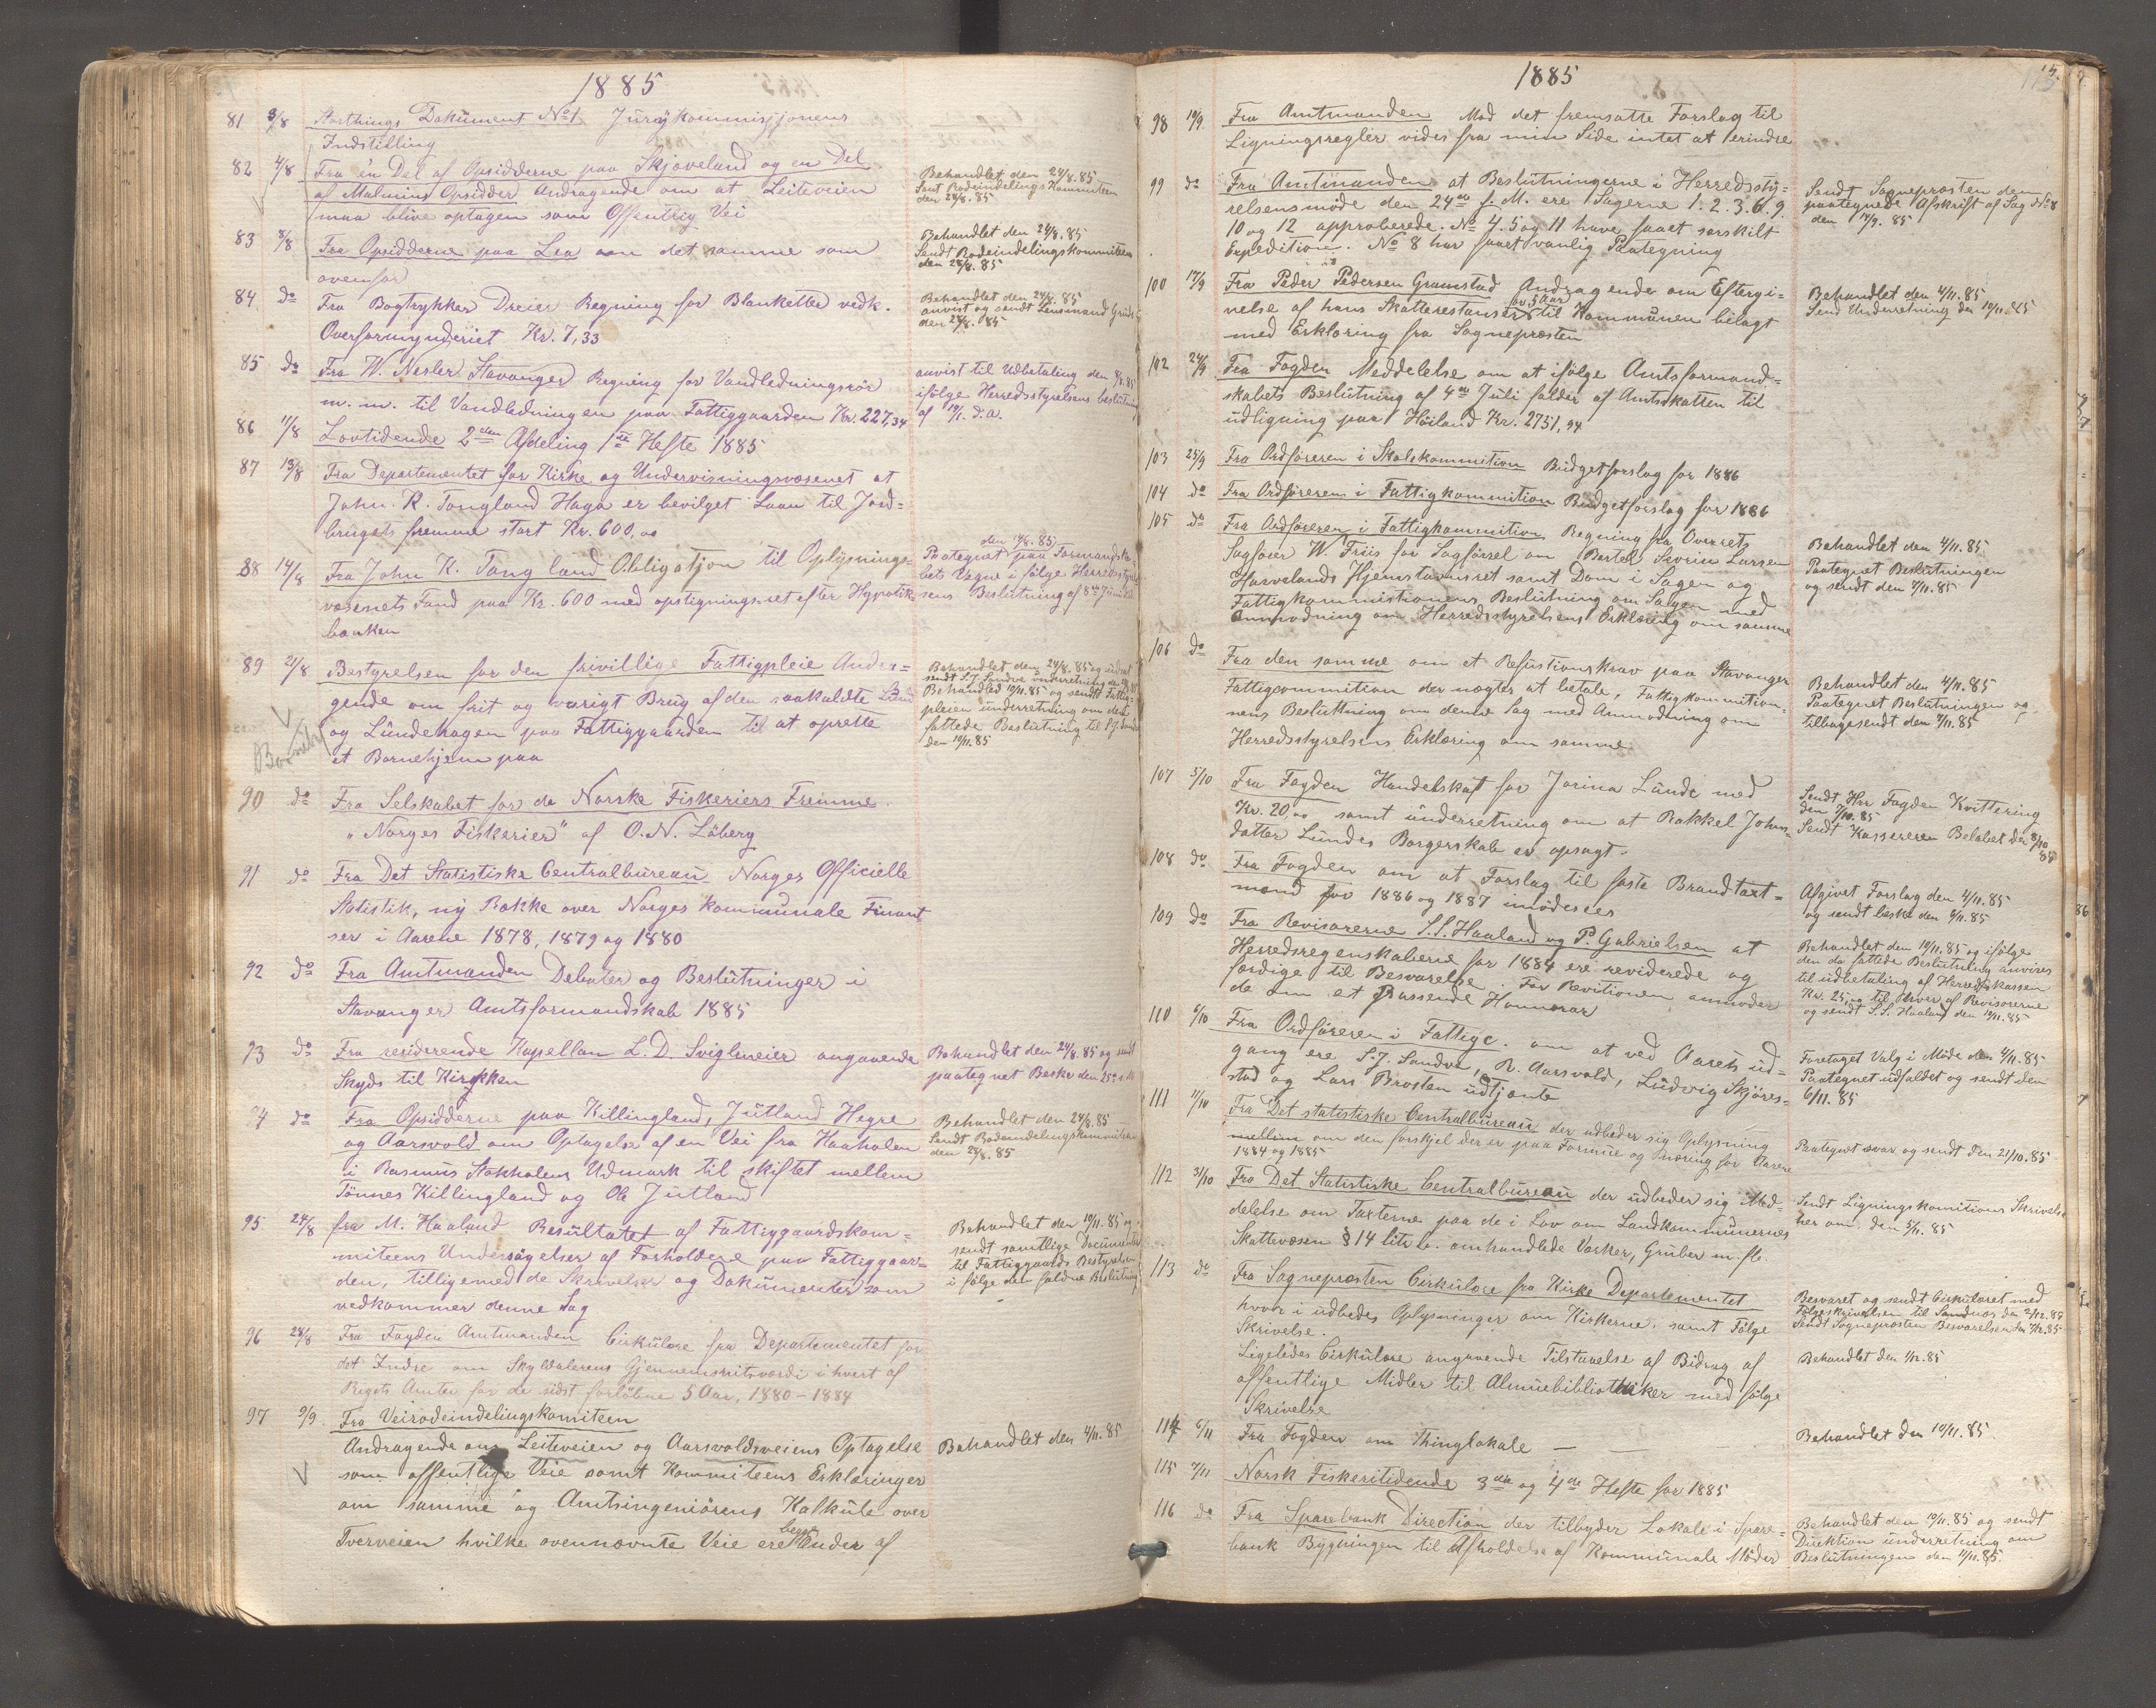 1885
81 3/8 Storthings Dokument No 1 Jurykommisjonens
Indstilling
82 4/8 Fra en Del af Opsidderne paa Skjæveland og en Del
af Malmins Opsidder Andragende om at Leiteveien
maa blive optagen som Offentlig Vei
Behandlet den 24/8. 85
Sendt Rodeindelings Kommiteen
den 28/8. 85
83 8/8 Fra Opsidderne paa Lea om det samme som
ovenfor
Behandlet den 24/8. 85
Sendt Rodeindelingskommiteen
den 28/8. 85
84 do Fra Bogtrykker Dreier Regning for Blanketter vedk.
Overformynderiet Kr. 7,33
Behandlet den 24/8. 85
anvist og sendt Lensmand
den 28/8. 85
85 do Fra W. Nesler Stavanger Regning for Vandledningsrör
m. m. til Vandledningen paa Fattiggaarden Kr. 227,34
anvist til Udbetaling den 8/8. 85
ifølge Herredsstyrelsens beslutning
af 19/1. d. a.
86 11/8 Lovtidende 2den Afdeling 1ste Hefte 1885
87 13/8 Fra Departementet for Kirke og Undervisningsvæsenet at
John. K. Tongland Haga er bevilget Laan til Jord-
brugets fremme stort Kr. 600,00
88 14/8 Fra John K. Tang land Obligatjon til Oplysnings-
væsenets Fond paa Kr. 600 med opstigningsret efter Hypotek-
banken
den 14/8. 85
Paategnet paa Formandska-
bets Vegne i følge Herredsstyrel-
sens Beslutning af 8de Juni
89 21/8 Bestyrelsen for den frivillige Fattigpleie Andra-
gende om frit og varigt Brug af den saakaldte
og Lundehagen paa Fattiggaarden til at oprette
et Barnehjem paa
Behandlet den 24/8. 85 og udsat
sendt S. J. Sandve underretning den 28/8 85
Behandled 10/11. 85 og sendt Fattig-
pleien underretning om den
fattede Beslutning til S. J. Sandve
den 10/11. 85
90 do Fra Selskabet for de Norske Fiskeriers Fremme.
"Norges Fiskerier" af O. N. Löberg
91 do Fra Det Statistiske Centralbureau Norges Officielle
Statistik, ny Række over Norges kommunale Finant
ser i Aarene 1878, 1879 og 1880
92 do Fra Amtmanden Debater og Beslutninger i
Stavanger Amtsformandskab 1885
93 do Fra residerende Kapellan L. D. Sviglmeier angaaende
Skyds til Kirkken
Behandlet den 24/8. 85 og sendt
paategnet Beske den 25de s. M.
94 do Fra Opsidderne paa Killingland, Jutland Hegre
og Aarsvold om Optagelse af en Vei fra Haaholen
i Rasmus Stokholens Udmark til skiftet mellem
Tönnes Killingland og Ole Jutland
Behandlet den 24/8. 85
Sendt Rodeindelingskommiteen
den 28/8. 85
95 24/8 fra M. Haaland Resultatet af Fattiggaardskom-
miteens Undersøgelser af Forholdene paa Fattiggaar-
den, tilligemed de Skrivelser og Dokumenter som
vedkommer denne Sag
Behandlet den 10/11. 85 og
sendt samtlige Documenter
til Fattiggaards Bestyrelsen
i følge den faldne Beslutning
96 28/8 Fra Fogden Amtmanden Cirkulære fra Departementet for
det Indre om Skylddalerens Gjennemsnitsværdi i hvert af
Rigets Amter for de sidst forløbne 5 Aar, 1880 - 1884
97 9/9. Fra Veirodeindelingskomiteen
Andragende om Leiteveien og Aarsvoldsveiens Optagelse
som offentlige Veie samt Kommiteens Erklæringer
om samme og Amtsingeniörens Kalkule over
Tverveien hvilke ovennævnte Veie ere under af
Behandlet den 4/11. 85
1885
98 10/9. Fra Amtmanden Mod det fremsatte Forslag til
Ligningsregler vides fra min Side intet at erindre
99 do Fra Amtmanden at Beslutningerne i Herredssty-
relsensmøde den 24de f. M. ere Sagerne 1. 2. 3. 6. 9.
10 og 12 approberede. No 4. 5 og 11 have faaet særskilt
Expedition. No 8 har faaet vanlig Paategning
Sendt Sognepræsten den
paategnede Afskrift af Sag No 8
den 14/9. 85
100 17/9 Fra Peder Pedersen Gramstad Andragende om Eftergi-
velse af hans Skatterestanser for 3 Aar til Kommunen bilagt
med Erklæring fra Sognepræsten
Behandlet den 4/11. 85
Send Underretning den 10/11. 85
102 24/9 Fra Fogden Meddelelse om at ifølge Amtsformand-
skabets Beslutning af 4de Juli falder af Amtsskatten til
udligning paa Höiland Kr. 2751,94
103 25/9 Fra Ordföreren i Skolekommition Budgetforslag for 1886
104 do Fra Ordföreren i Fattigkommition Budgetforslag for 1886
105 do Fra Ordföreren i Fattigkommition Regning fra Overrets
Sagfører W. Friis for Sagførsel om Bertel Severin Larsen
Haavelands Hjemstavnsret samt Dom i Sagen og
Fattigkommistionens Beslutning om Sagen med
Anmodning om Herredsstyrelsens Erklæring om samme
Behandlet den 4/11. 85
Paategnet Beslutningen
og sendt den 7/11. 85
106 do Fra den samme om et Refustionskrav paa Stavanger
Fattigcommition der nægtes at betale, Fattigkommition-
nens Besluttning om denne Sag med Anmodning om
Herredsstyrelsens Erklæring om samme
Behandlet den 4/11. 85
Paategnet Beslutningen og
tilbagesendt den 7/11. 85
107 5/10 Fra Fogden Handelskat for Jorina Lunde med
Kr. 20,00 samt underretning om at Rakkel Johns-
datter Lundes Borgerskab er opsagt.
Sendt Hrr Fogden Kvittering
den 7/10. 85
Sendt Kassereren Beløbet den 8/10
85
108 do Fra Fogden om at Forslag til faste Brandtaxt-
mænd for 1886 og 1887 imødesees
Afgivet Forslag den 4/11. 85
og sendt beske den 6/11. 85
109 do Fra Revisorerne S. S. Haaland og P. Gabrielsen at
Herredsregenskaberne for 1884 ere reviderede og
færdige til Besvarelse. For Revitionen anmoder
de om et Passende Honnorar
Behandlet den 10/11. 85 og ifølge
den da fattede Beslutning anvises
til udbetaling af Herredskassen
Kr. 25,00 til hver af Revisorerne
og sendt S. S. Haaland den 10/11. 85
110 6/10 Fra Ordföreren i Fattigc. om at ved Aarets ud-
gang ere S. J. Sandve, R. Aarsvold, Ludvig Skjöres-
stad og Lars Brosten udtjente
Foretaget Valg i Möde den 4/11. 85
Paategnet udfaldet og sendt den
6/11. 85
111 11/10 Fra Det statistiske Centralbureau der udbeder sig Oplysning
mellem om den forskjel der er paa Formue og næring for Aarene
1884 og 1885
Paategnet svar og sendt den 21/10. 85
112 31/10 Fra Det Statistiske Centralbureau der udbeder sig Med-
delelse om Taxterne paa de i Lov om Landkommunernes
Skattevæsen § 14 litr b. omhandlede Værker, Gruber m. fl.
Sendt Ligningskomitionens Skrivelse
her om den 5/11. 85
113 do Fra Sognepræsten Cirkulære fra Kirke Departementet
hvor i udbedes Oplysninger om Kirkerne. samt Følge
Skrivelse.
Ligeledes Cirkulære angaaende Tilstaaelse af Bidrag af
offentlige Midler til Almuebibliotheker med følge
Skrivelse
Besvaret og sendt Cirkulæret med
Følgeskrivelsen til Sandnæs den 2/12. 85
Sendt Sognepræsten Besvarelsen den 2/12. 85
Behandlet den 1/12. 85
114 6/11 Fra Fogden om Thinglokale
Behandlet den 10/11. 85
115 7/11 Norsk Fiskeritidende 3die og 4de Hefte for 1885
116 do Fra Sparebank Direction der tilbyder Lokale i Spare-
bank Bygningen til Afholdelse af Kommunale Möder
Behandlet den 10/11. 85 og sendt
Direktion underretning om
Beslutningen den 11/11. 85.